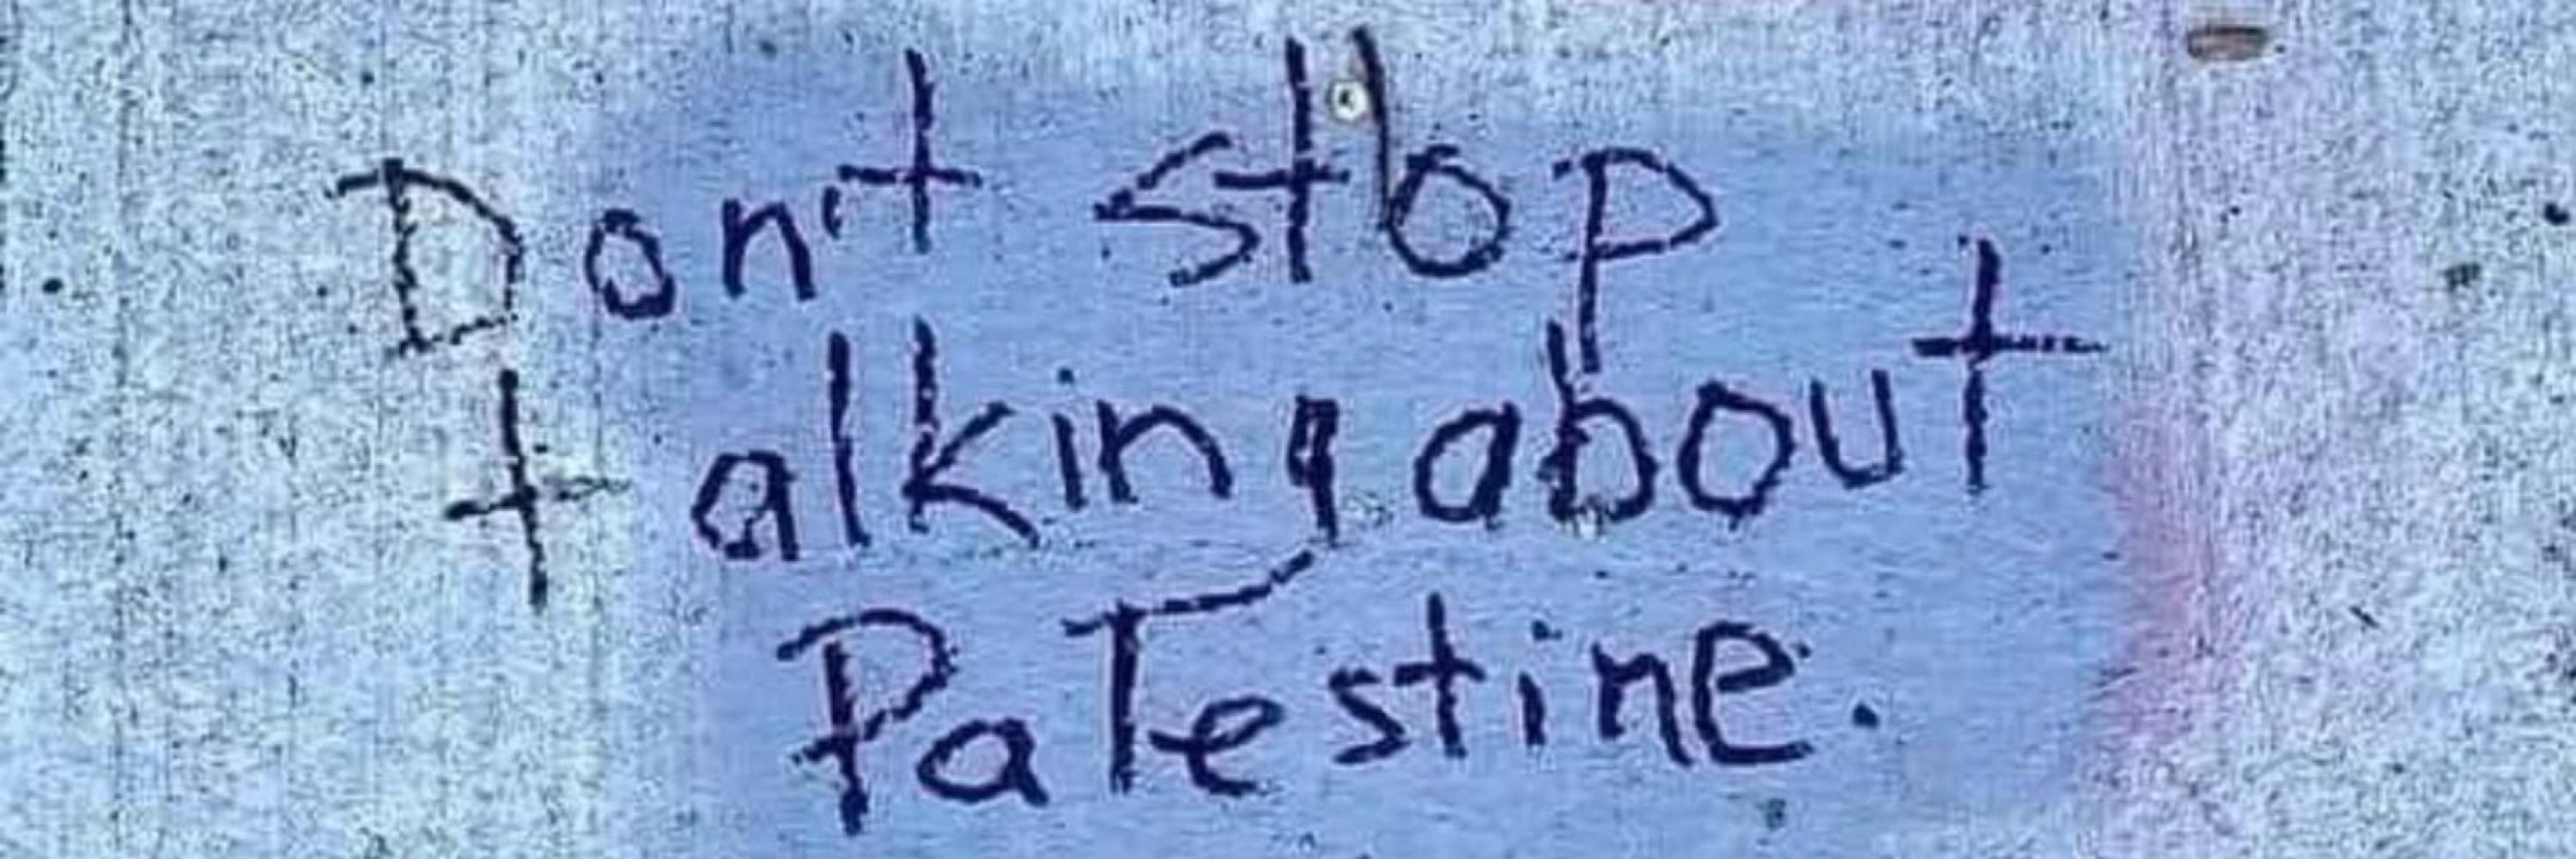 Don't stop
talking about
Palestine.